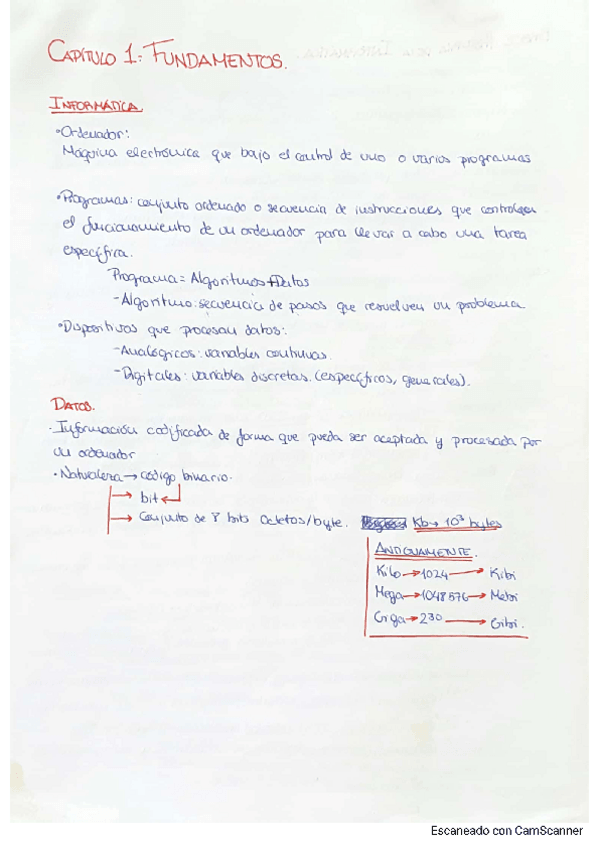 CAPÍTULO 1: FUNDAMENTOS.
INFORMÁTICA
•Ordenador:
Máquina electrónica que bajo el control de uno o varios programas
•Programas: conjunto ordenado o secuencia de instrucciones que controlan
el funcionamiento de un ordenador para llevar a cabo una tarea
específica.
Programa = Algoritmos + Datos
- Algoritmo: secuencia de pasos que resuelven un problema
•Dispositivos que procesan datos:
- Analógicos: variables continuas.
- Digitales: variables discretas. (específicos, generales).
DATOS.
• Información codificada de forma que pueda ser aceptada y procesada por
un ordenador
• Naturaleza → código binario.
→ bit ←
→ Conjunto de 8 bits Octetos/byte. Kb → 10³ bytes
ANTIGUAMENTE.
Kilo → 1024 → Kibi
Mega → 1048576 → Mebi
Giga → 230 → Gibi.
Escaneado con CamScanner